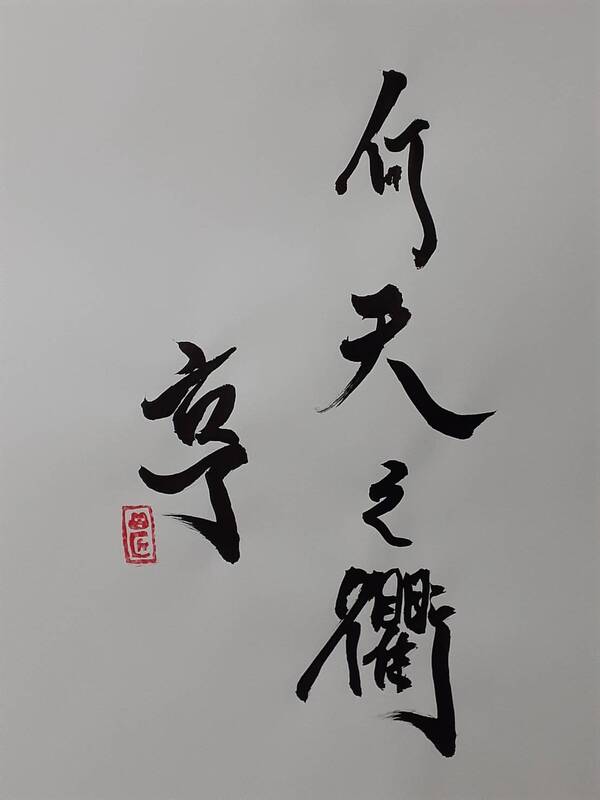 何天之衢
亨